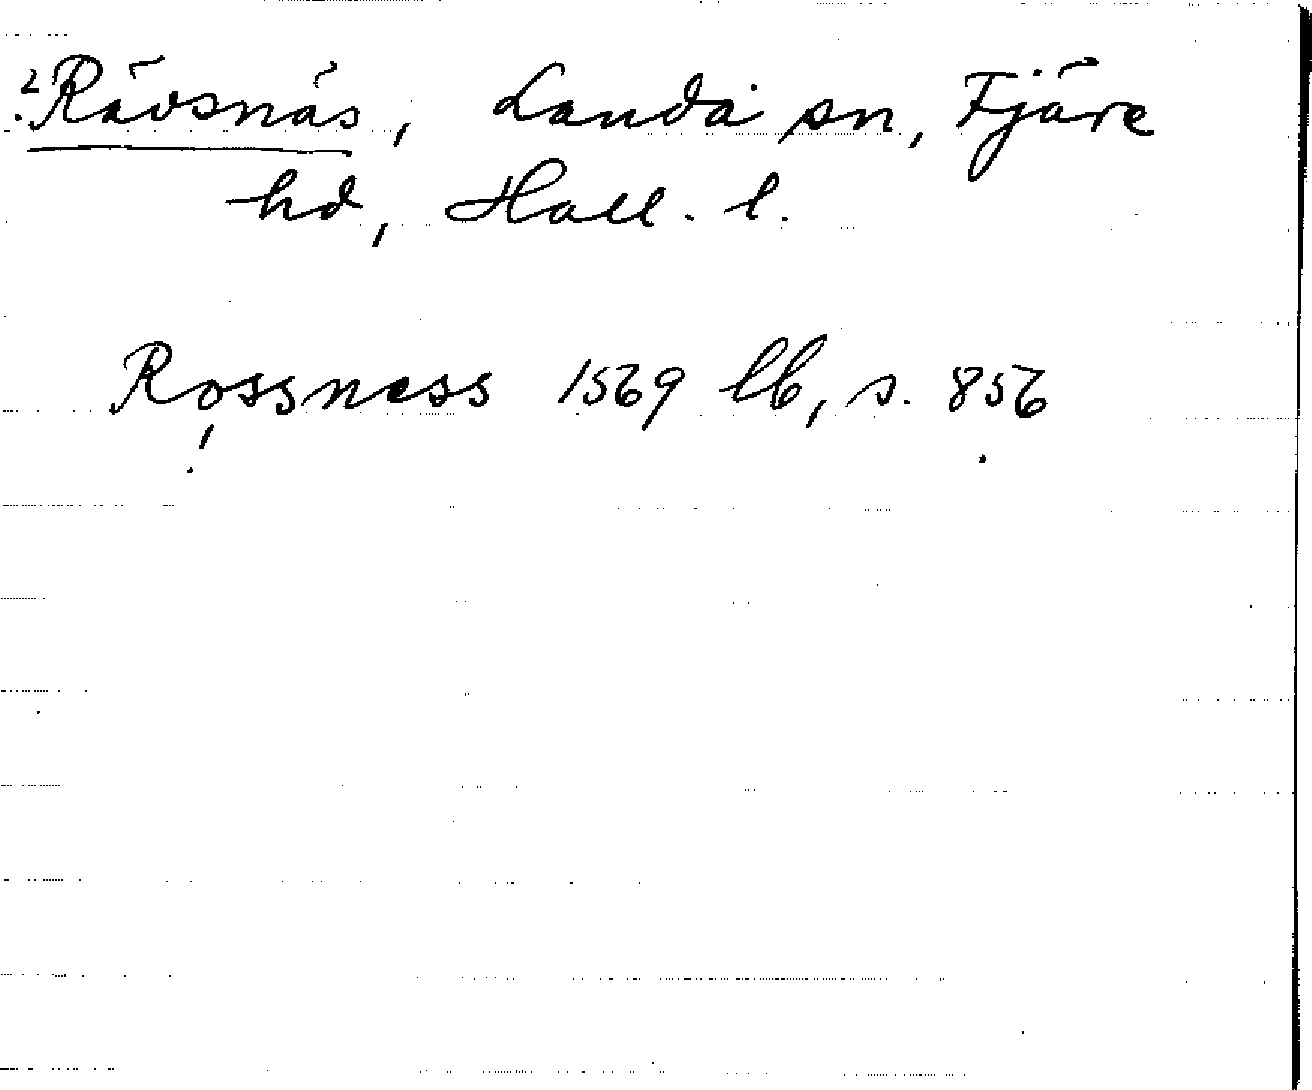 ?Rävsnäs, Landa sn, Fjäre
hd, Hall. l.
Rossness 1569 lb, s. 856
!